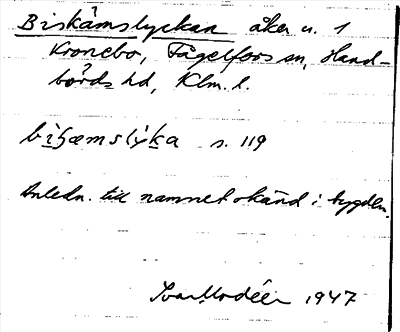 Biskämslyckan åker u. 1
Kronebo, Fågelfors sn, Hand-
börds hd, Klm. l.
biʃæmslýka s. 119
Anledn. till namnet okänd i bygden.
Ivar Modéer 1947